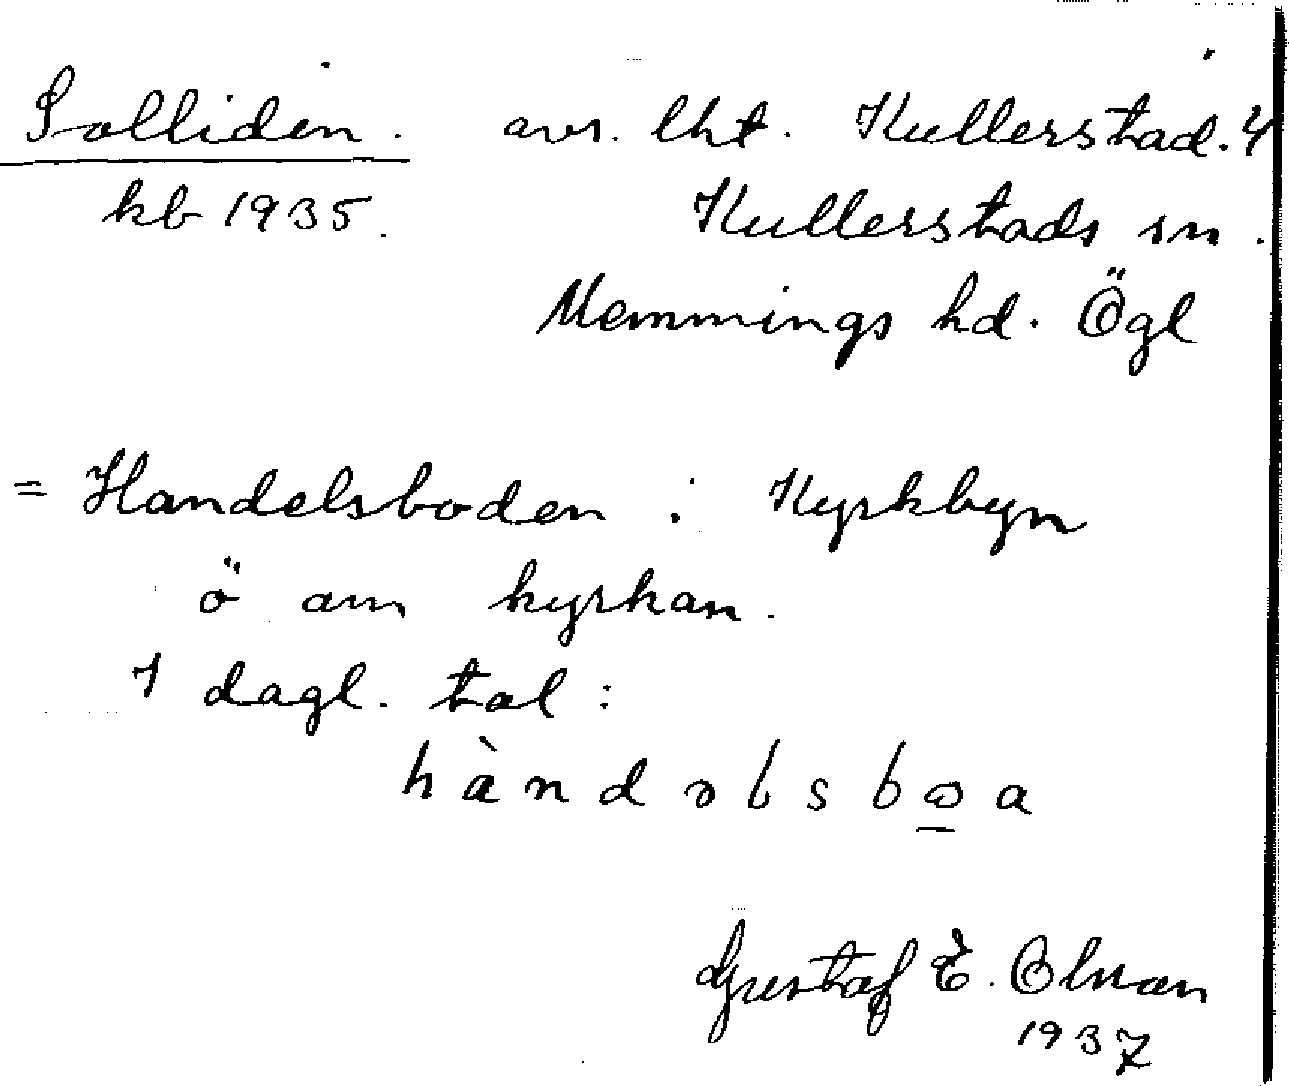 Solliden. avs. lht. Kullerstad. 4
kb 1935. Kullerstads sn.
Memmings hd. Ögl
= Handelsboden i Kyrkbyn
ö om kyrkan.
I dagl. tal:
hàndəlsboa
Gustaf E. Olsson
1937